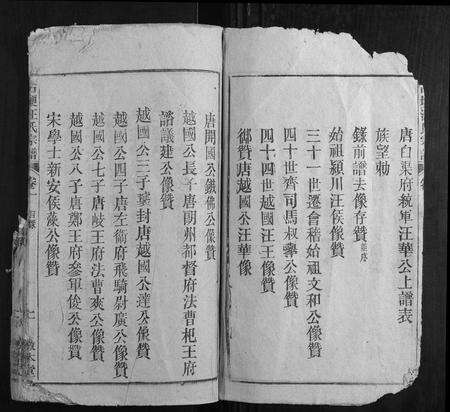 唐白渠府統軍汪華公上譜表
族望勅
錄前譜去像存贊
始祖潁川汪侯像贊
三十一世遷會稽始祖文和公像贊
四十世齊司馬叔舉公像贊
四十四世越國汪王像贊
御贊唐越國公汪華像
唐開國公鐵佛公像贊
越國公長子唐朗州都督府法曹杞王府
諮議建公像贊
越國公三子襲封唐越國公達公像贊
越國公四子唐左衛府飛騎尉廣公像贊
越國公七子唐岐王府法曹爽公像贊
越國公八子唐鄭王府參軍俊公像贊
宋學士新安侯藻公像贊
汪氏宗譜
卷一